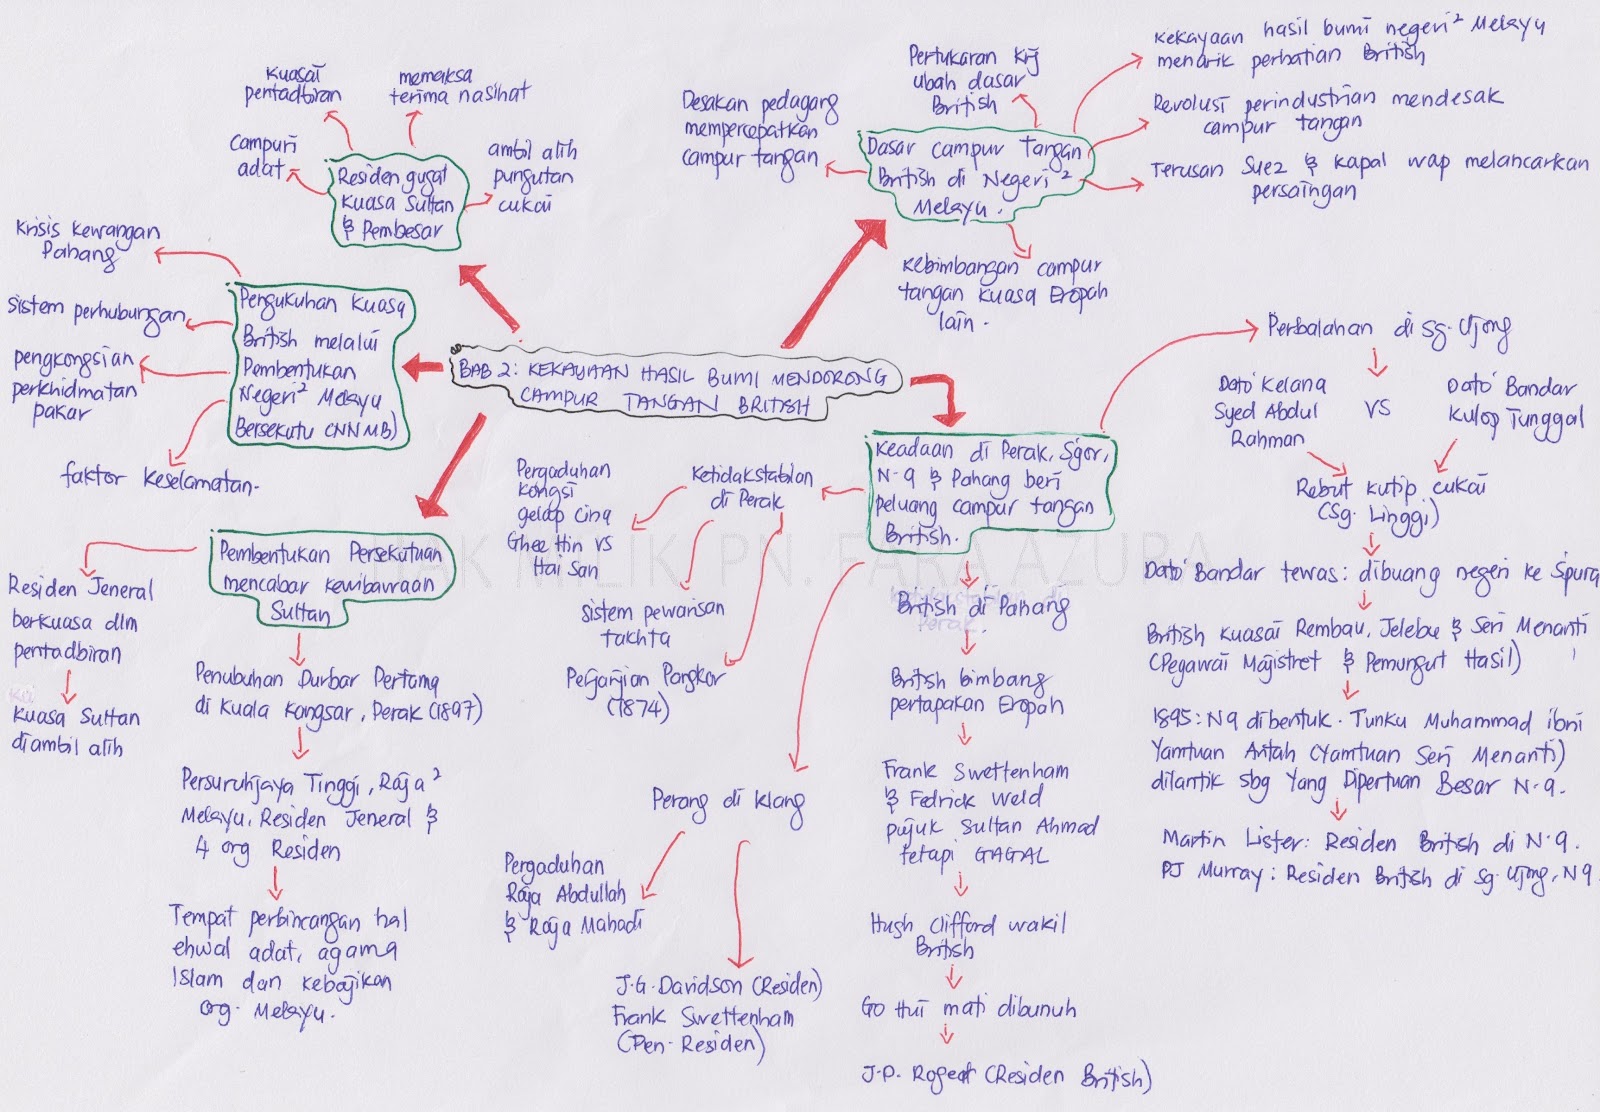 BAB 2: KEKAYAAN HASIL BUMI MENDORONG
CAMPUR TANGAN BRITISH
Dasar campur Tangan
British di Negeri²
Melayu.
Desakan pedagang
mempercepatkan
campur tangan
Pertukaran Krj
ubah dasar
British
Kekayaan hasil bumi negeri² Melayu
menarik perhatian British
Revolusi perindustrian mendesak
campur tangan
Terusan Suez & kapal wap melancarkan
persaingan
Kebimbangan campur
tangan kuasa Eropah
lain.
Keadaan di Perak, S'gor,
N.9 & Pahang beri
peluang campur tangan
British.
Perbalahan di Sg. Ujong
Dato' Kelana
Syed Abdul
Rahman
VS
Dato' Bandar
Kulop Tunggal
Rebut kutip cukai
(Sg. Linggi)
Dato' Bandar tewas: dibuang negeri ke S'pura
British kuasai Rembau, Jelebu & Seri Menanti
(Pegawai Majistret & Pemungut Hasil)
1895: N9 dibentuk. Tunku Muhammad ibni
Yamtuan Antah (Yamtuan Seri Menanti)
dilantik sbg Yang Dipertuan Besar N.9.
Martin Lister: Residen British di N.9.
PJ Murray: Residen British di Sg. Ujong, N9.
British di Pahang
British bimbang
pertapakan Eropah
Frank Swettenham
& Fedrick Weld
pujuk Sultan Ahmad
tetapi GAGAL
Hugh Clifford wakil
British
Go Hui mati dibunuh
J.P. Rogeat (Residen British)
Perang di Klang
Pergaduhan
Raja Abdullah
& Raja Mahadi
J.G. Davidson (Residen)
Frank Swettenham
(Pen. Residen)
Ketidakstabilan
di Perak
Pergaduhan
kongsi
gelap Cina
Ghee Hin vs
Hai San
sistem pewarisan
takhta
Perjanjian Pangkor
(1874)
Pembentukan Persekutuan
mencabar kewibawaan
Sultan
Residen Jeneral
berkuasa dlm
pentadbiran
kuasa Sultan
diambil alih
Penubuhan Durbar Pertama
di Kuala Kangsar, Perak (1897)
Persuruhjaya Tinggi, Raja²
Melayu, Residen Jeneral &
4 org Residen
Tempat perbincangan hal
ehwal adat, agama
Islam dan kebajikan
org. Melayu.
Pengukuhan Kuasa
British melalui
Pembentukan
Negeri² Melayu
Bersekutu (NNMB)
Krisis kewangan
Pahang
sistem perhubungan
pengkongsian
perkhidmatan
pakar
faktor keselamatan.
Residen gugat
kuasa Sultan
& Pembesar
campuri
adat
kuasai
pentadbiran
memaksa
terima nasihat
ambil alih
pungutan
cukai
HAK MILIK PN. FARA AZURA